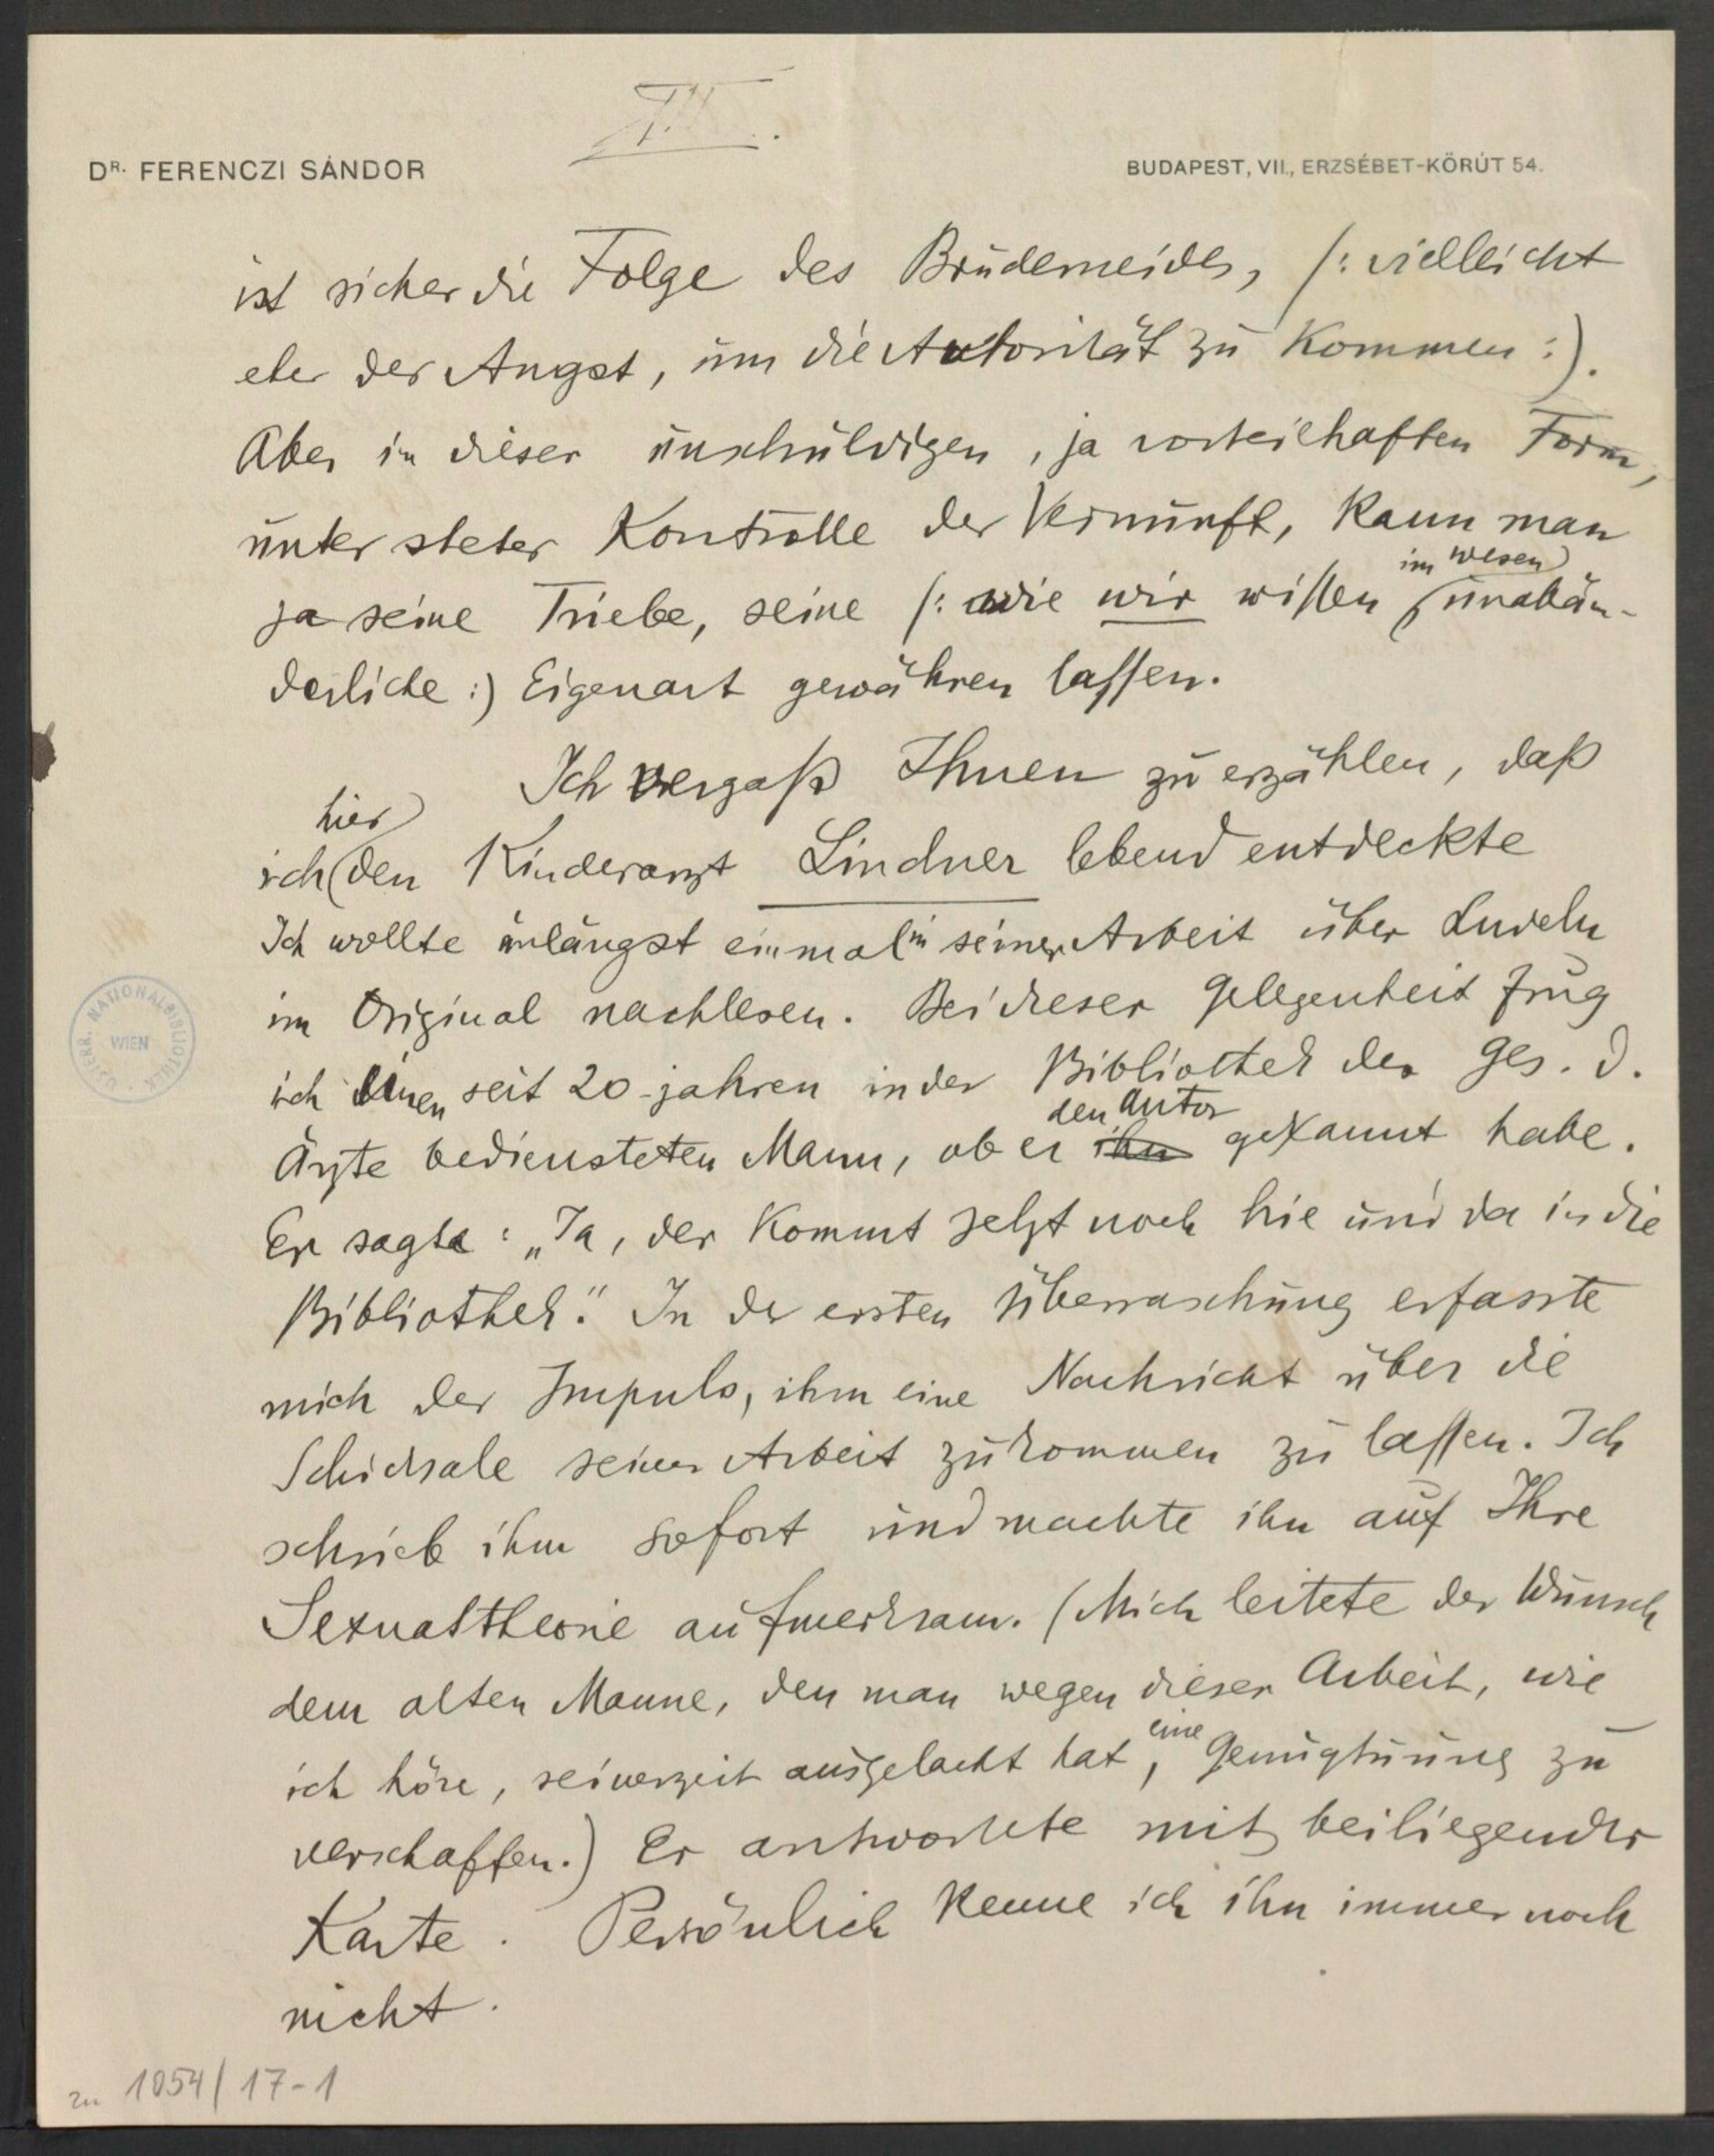 III.
DR. FERENCZI SÁNDOR
BUDAPEST, VII., ERZSÉBET-KÖRÚT 54.
ist sicher die Folge des Bruderneides, /: vielleicht
eher der Angst, um die Autorität zu kommen :).
Aber in dieser unschuldigen, ja vorteilhaften Form,
unter steter Kontrolle der Vernunft, kann man
ja seine Triebe, seine /: wie wir wissen im Wesen unabän-
derliche :) Eigenart gewähren lassen.
Ich vergaß Ihnen zu erzählen, daß
ich hier den Kinderarzt Lindner lebend entdeckte
Ich wollte unlängst einmal in seiner Arbeit über Ludeln
im Original nachlesen. Bei dieser Gelegenheit frug
ich einen seit 20 jahren in der Bibliothek der Ges. d.
Ärzte bediensteten Mann, ob er ihn den Autor gekannt habe.
Er sagte: „Ja, der kommt jetzt noch hie und da in die
Bibliothek." In der ersten Überraschung erfasste
mich der Impuls, ihm eine Nachricht über die
Schicksale seiner Arbeit zukommen zu lassen. Ich
schrieb ihm sofort und machte ihn auf Ihre
Sexualtheorie aufmerksam. (Mich leitete der Wunsch
dem alten Manne, den man wegen dieser Arbeit, wie
ich höre, seinerzeit ausgelacht hat, eine Genugtuung zu
verschaffen.) Er antwortete mit beiliegender
Karte. Persönlich kenne ich ihn immer noch
nicht.
ÖSTERR. NATIONALBIBLIOTHEK
WIEN
zu 1054/17-1